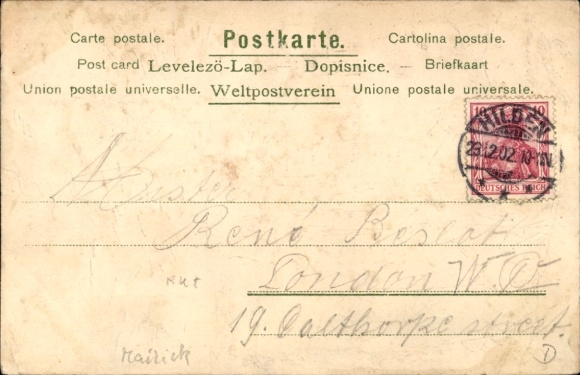 Carte postale. Postkarte. Cartolina postale.
Post card Levelező-Lap. — Dopisnice. — Briefkaart
Union postale universelle. Weltpostverein Unione postale universale.
10 10
HILDEN
12.02.10-11V.
DEUTSCHES REICH
René
London W.
19. Calthorpe street.
D